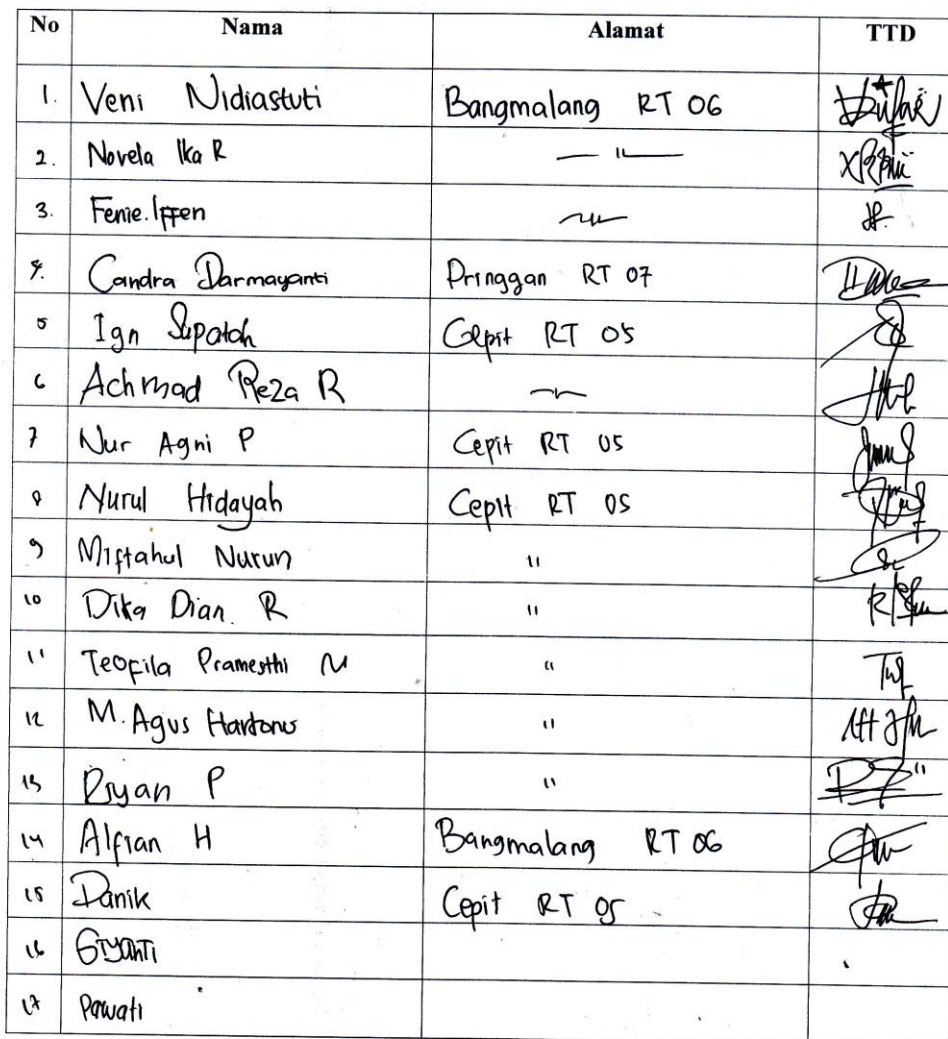 No Nama Alamat TTD
1. Veni Nidiastuti Bangmalang RT 06
2. Novela Ika R — " —
3. Fenie.Iffen — " —
4. Candra Darmayanti Pringgan RT 07
5 Ign Supatah Cepit RT 05
6 Achmad Reza R — " —
7 Nur Agni P Cepit RT 05
8 Nurul Hidayah Cepit RT 05
9 Miftahul Nurun "
10 Dika Dian. R "
11 Teofila Pramesthi N "
12 M. Agus Hartono "
13 Riyan P "
14 Alfian H Bangmalang RT 06
15 Danik Cepit RT 05
16 Giyanti
17 Pawati